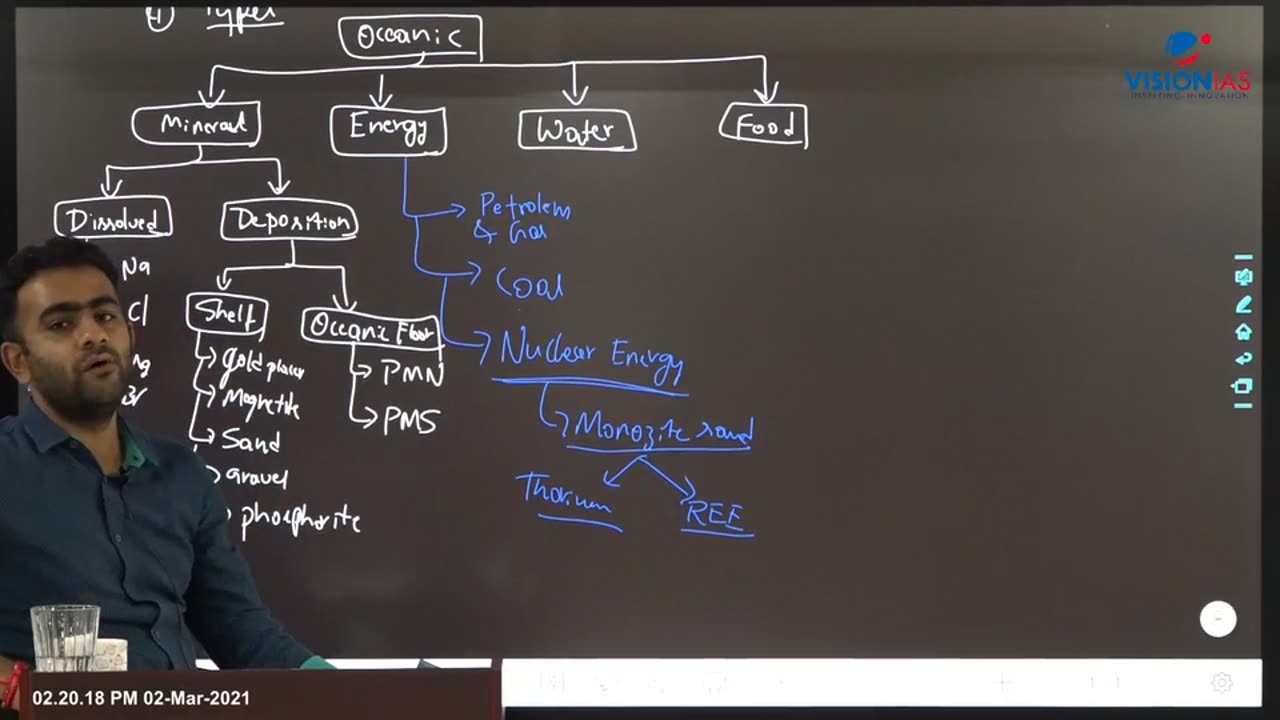 ① Types
Oceanic
VISIONIAS
INSPIRING INNOVATION
Mineral
Energy
Water
Food
Dissolved
Deposition
Petrolem
& Gas
Na
Coal
Cl
Shelf
Oceanic Floor
Nuclear Energy
Mg
Gold placer
PMN
Br
Magnetite
PMS
Monozite sand
Sand
Gravel
Thorium
REE
phosphorite
02.20.18 PM 02-Mar-2021